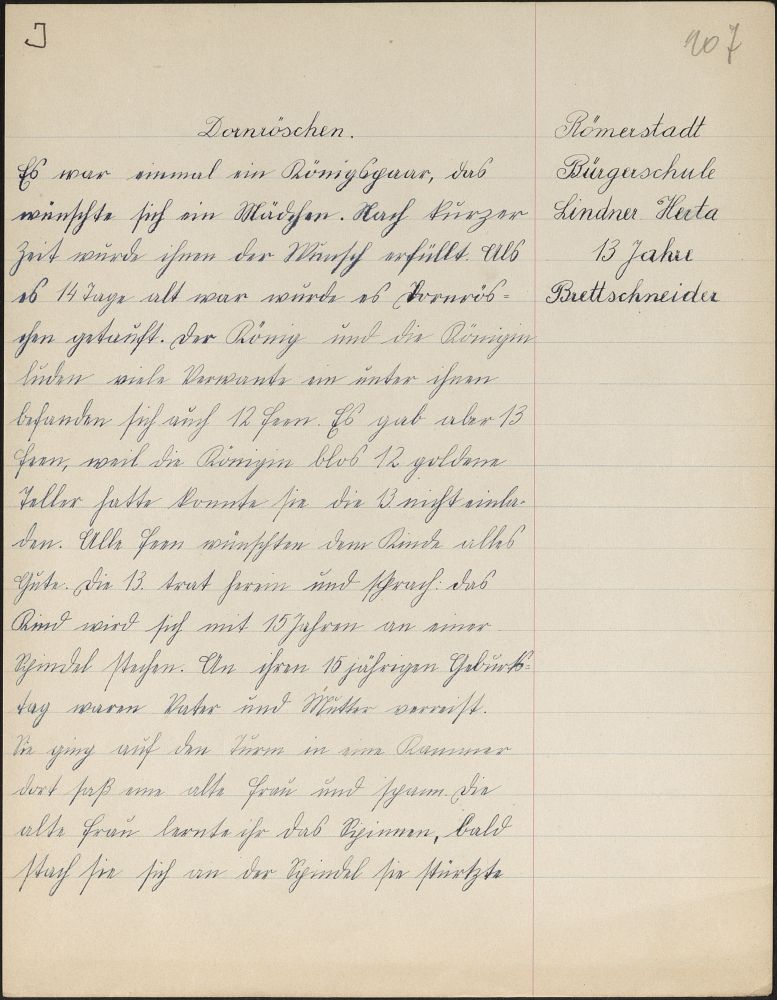 J
207
Dornröschen.
Es war einmal ein Königspaar, das
wünschte sich ein Mädchen. Nach kurzer
Zeit wurde ihnen der Wunsch erfüllt. Als
es 14 Tage alt war wurde es Dornrös=
chen getauft. Der König und die Königin
luden viele Verwante ein unter ihnen
befanden sich auch 12 Feen. Es gab aber 13
Feen, weil die Königin blos 12 goldene
Teller hatte konnte sie die 13. nicht einla-
den. Alle Feen wünschten dem Kinde alles
Gute. Die 13. trat herein und sprach: das
Kind wird sich mit 15 Jahren an einer
Spindel stechen. An ihren 15 jährigen Geburts=
tag waren Vater und Mutter verreist.
Sie ging auf den Turm in eine Kammer
dort saß eine alte Frau und spann. Die
alte Frau lernte ihr das Spinnen, bald
stach sie sich an der Spindel sie stürtzte
Römerstadt
Bürgerschule
Lindner Herta
13 Jahre
Brettschneider